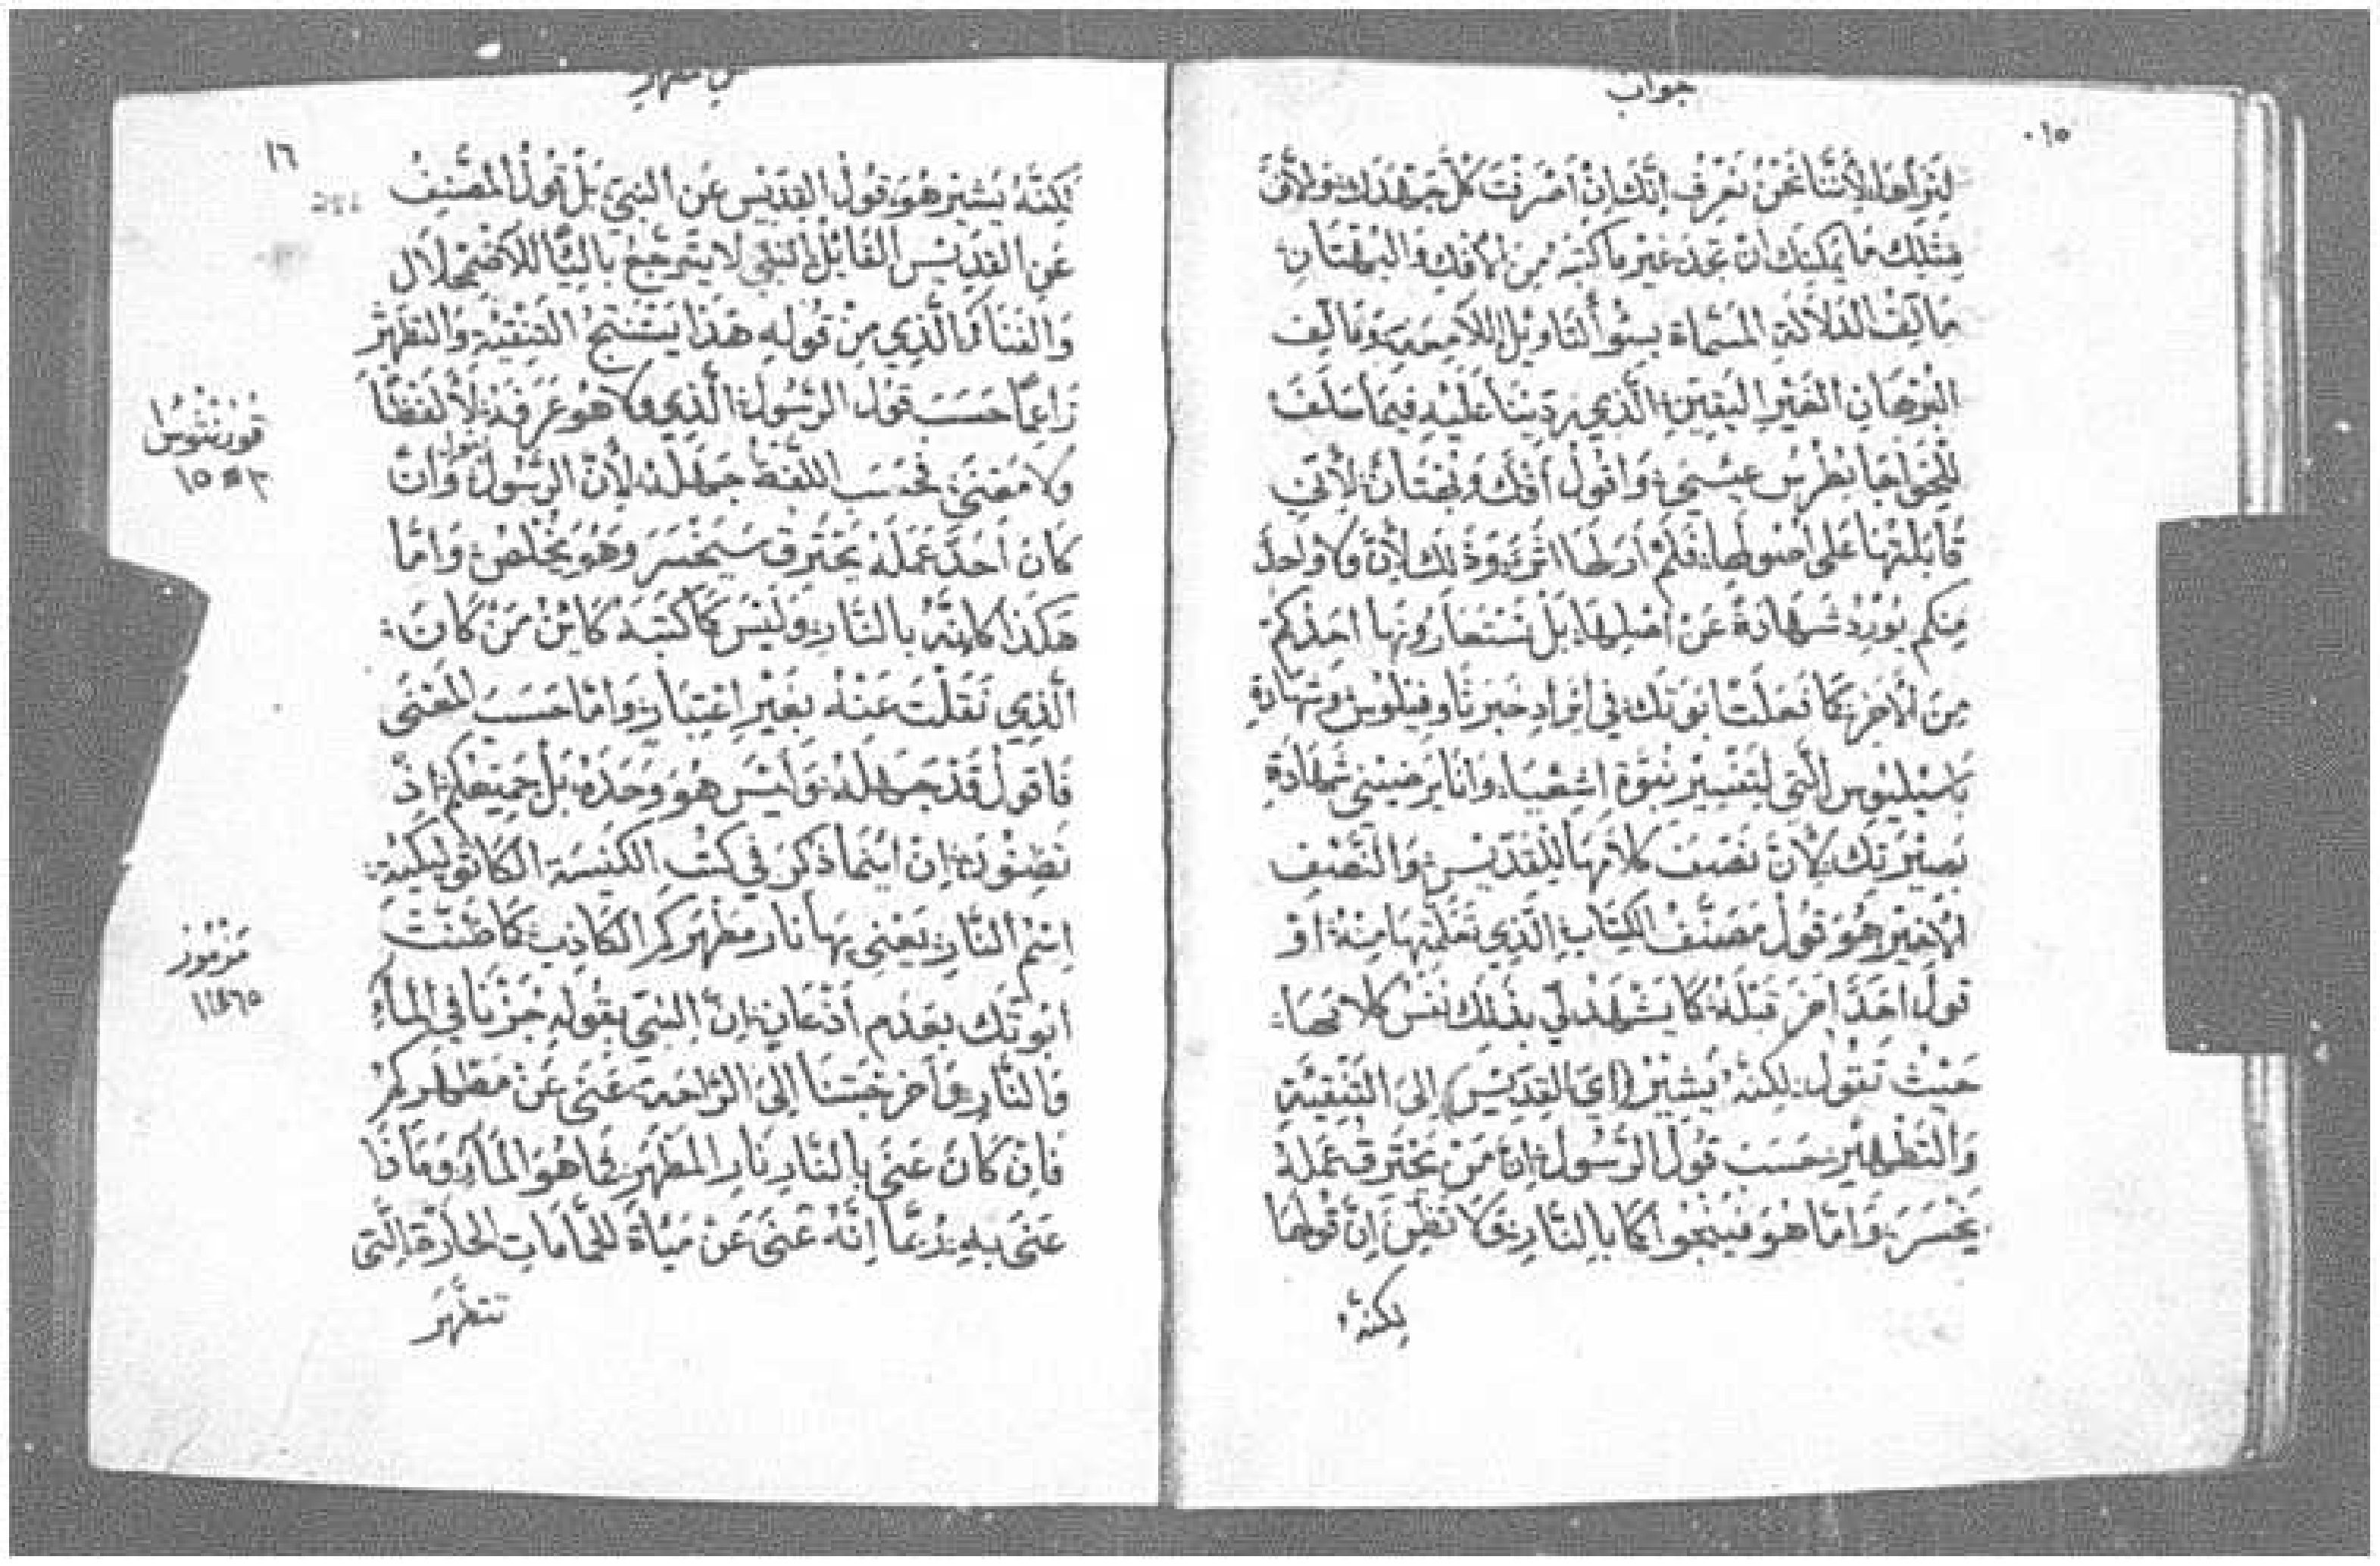 جواب
١٥
لاننا نحن نعرف انك ان اصرفت كل جهدك ولان
مثلك ما يمكنك ان تجد غير ما كتبه من الافك والبهتان
مالف الضلالة المسماة بسو التاويل اللامحمية ومالف
البرهان الغير اليقين الذي ردينا عليه فيما سلف
للخواجا بطرس عيسى واقول افك وبهتان لاني
قابلتها على اصولها فلم ار لها اثر وذلك لان ولا واحد
منكم يورد شهادة عن اصلها بل تستعارونها احدكم
من الاخر كما فعلت ابوتك في ايراد وشهادة
باسيليوس التي لتفسير نبوة اشعيا وانا يرضيني شهادة
بصيرتك لان نصف كلامها للقديس والنصف
الاخير هو قول مصنف الكتاب الذي نقلتها منه او
قول احد اخر قبله كما يشهد لي بذلك نفس كلامها
حيث تقول لكنه يشير (اي القديس) الى التنقية
والتطهير حسب قول الرسول ان من يحترق عمله
يخسر واما هو فينجوا كما بالنار ولا تظن ان قولها
لكنه
١٦
لكنه يشير هو قول القديس عن النبي بل قول المصنف
عن القديس القايل النبي لا يترجع بالينا للاضمحلال
والفنا والذي من قوله هذا يستنتج التنقية والتطهر
زاعما حسب قول الرسول الذي ولا هو عرفه لا لفظا
ولا معنى فحسب اللفظ جهله لان الرسول يقول وان
كان احد عمله يحترق سيخسر وهو يخلص واما
هكذا كانه بالنار وليس كما كتبه كائن من كان
الذي نقلت عنه بغير اعتبار واما حسب المعنى
فاقول قد جهله وليس هو وحده بل جميعكم اذ
تظنون ان اينما ذكر في كتب الكنيسة الكاثوليكية
اسم النار يعني بها نار مطهركم الكاذب كما ظنت
ابوتك بعدم اذعان ان النبي بقوله جزنا في الماء
والنار واخرجتنا الى الراحة عنى عن مطهركم
فان كان عنى بالنار نار المطهر فما هو الماء وماذا
عنى به ربما انه عنى عن مياة للحمامات الحارة التي
تتطهر
قورنثوس ا
٣ ١٥
مزمور
٦٥ ١١